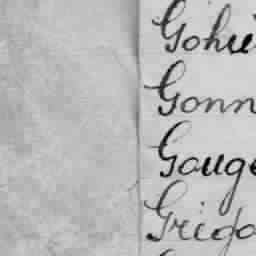 Gohie
Gonn
Gouge
Grigo